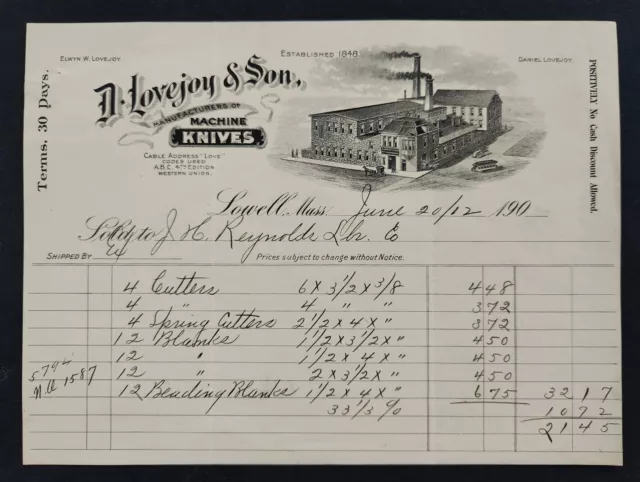 ELWYN W. LOVEJOY.
ESTABLISHED 1848.
DANIEL LOVEJOY.
Terms, 30 Days.
POSITIVELY No Cash Discount Allowed.
D. Lovejoy & Son,
MANUFACTURERS OF
MACHINE
KNIVES.
CABLE ADDRESS "LOVE"
CODES USED
A.B.C. 4TH EDITION
WESTERN UNION.
Lowell, Mass. June 20/12 190
Sold to J. H. Reynolds Lbr. Co
SHIPPED BY
Prices subject to change without Notice.
4 Cutters 6 x 3 1/2 x 3/8 448
4 " 4 " " 372
4 Spring Cutters 2 1/2 x 4 x " 372
12 Blanks 1 1/2 x 3 1/2 x " 450
12 " 1 1/2 x 4 x " 450
12 " 2 x 3 1/2 x " 450
1587
12 Beading Blanks 1 1/2 x 4 x " 675 3217
33 1/3 % 1072
2145